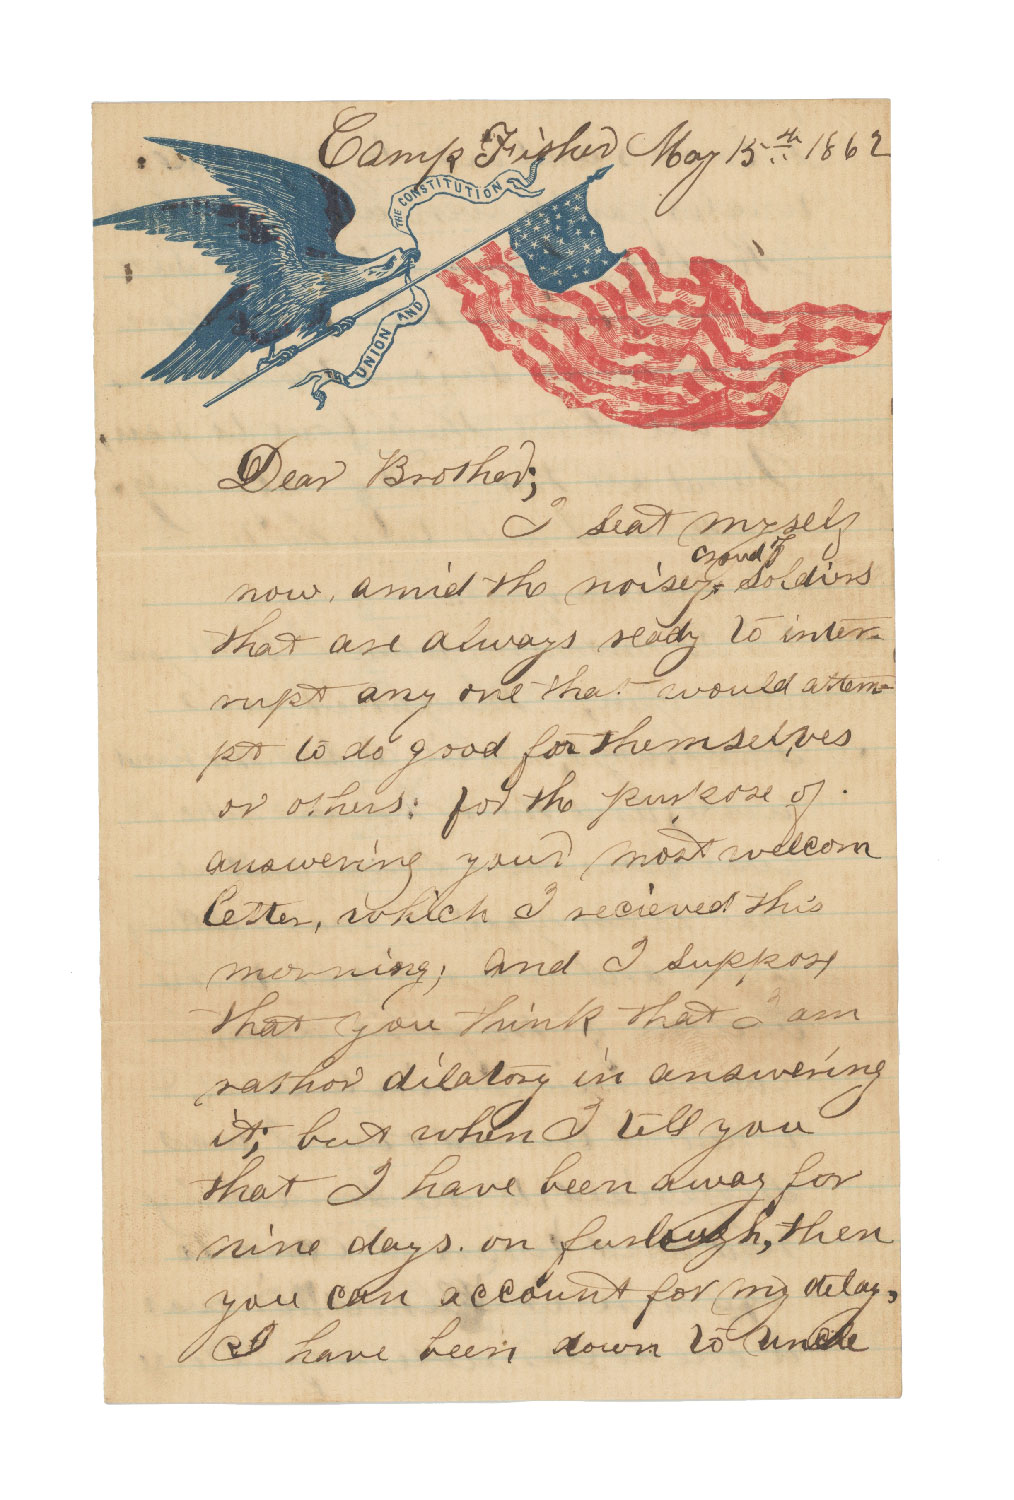 Camp Fisher May 15th 1862
THE CONSTITUTION
THE UNION AND
Dear Brother;
I seat myself
now, amid the noisey, croud of soldiers
that are always ready to inter-
rupt any one that would attem-
pt to do good for themselves
or others: for the purpose of
answering your most welcom
letter, which I recieved this
morning; and I suppose
that you think that I am
rather dilatory in answering
it; but when I tell you
that I have been away for
nine days. on furlough, then
you can account for my delay,
I have been down to uncle